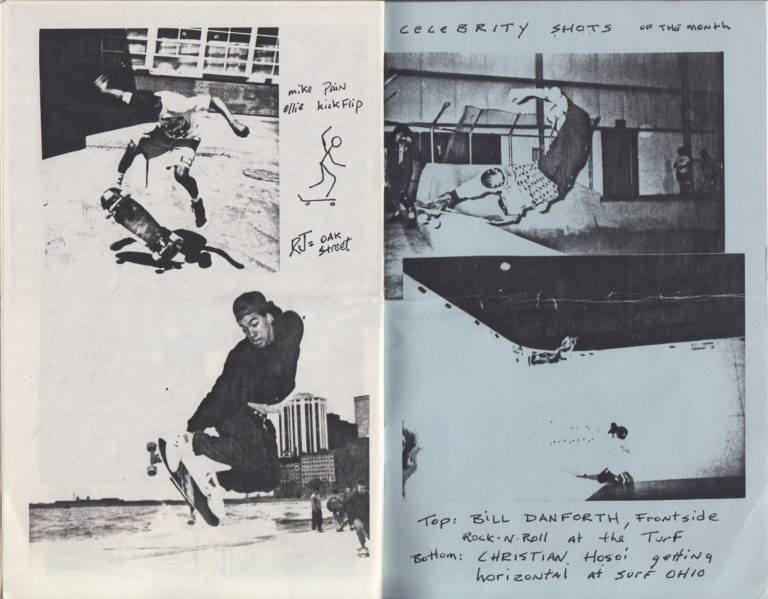 mike PAIN
ollie kickflip
RJ = OAK
Street
CELEBRITY SHOTS OF THE MONTH
Top: BILL DANFORTH, Frontside
ROCK-N-ROLL at the TURF
Bottom: CHRISTIAN Hosoi getting
horizontal at SURF OHIO